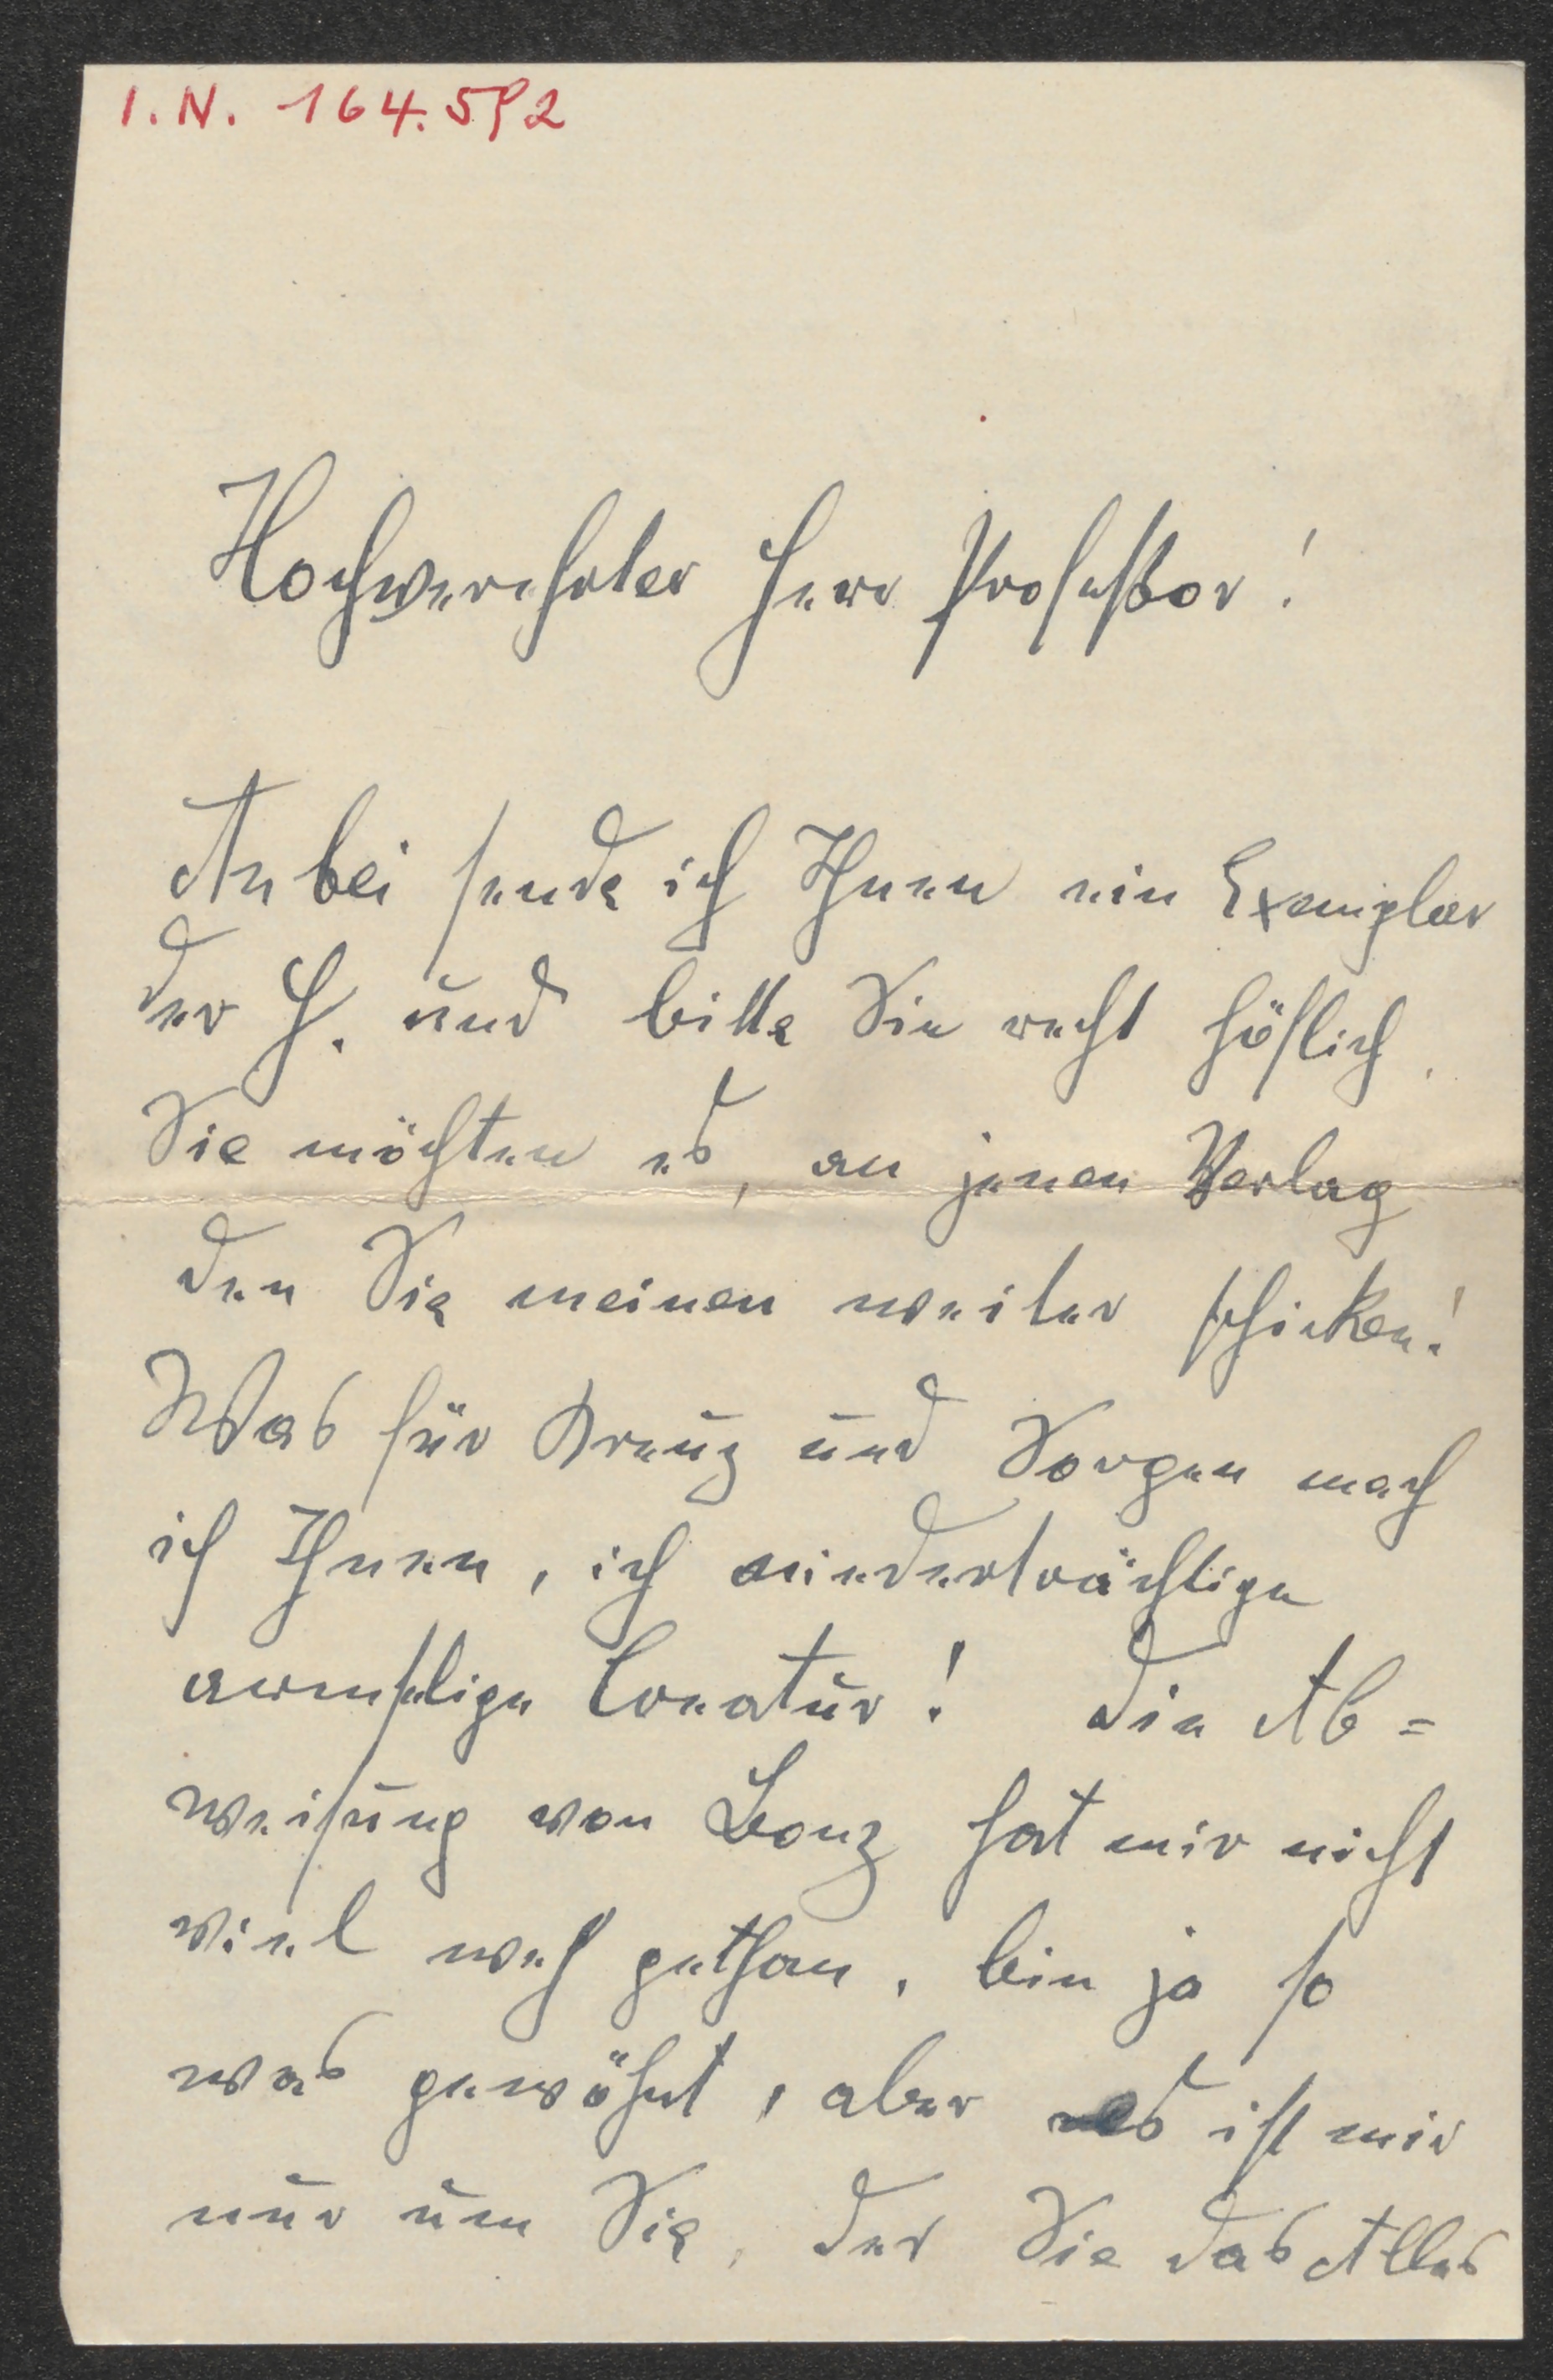 I. N. 164.592
Hochverehrter Herr Professor!
Anbei sende ich Ihnen ein Exemplar
der H. und bitte Sie recht höflich,
Sie möchten es, an jenen Verlag
den Sie meinen weiter schicken!
Was für Kreuz und Sorgen mach
ich Ihnen, ich niederträchtige
armselige Creatur! Die Ab=
weisung von Bonz hat mir nicht
viel weh gethan, bin ja so
was gewöhnt, aber es ist mir
nur um Sie, der Sie das Alles